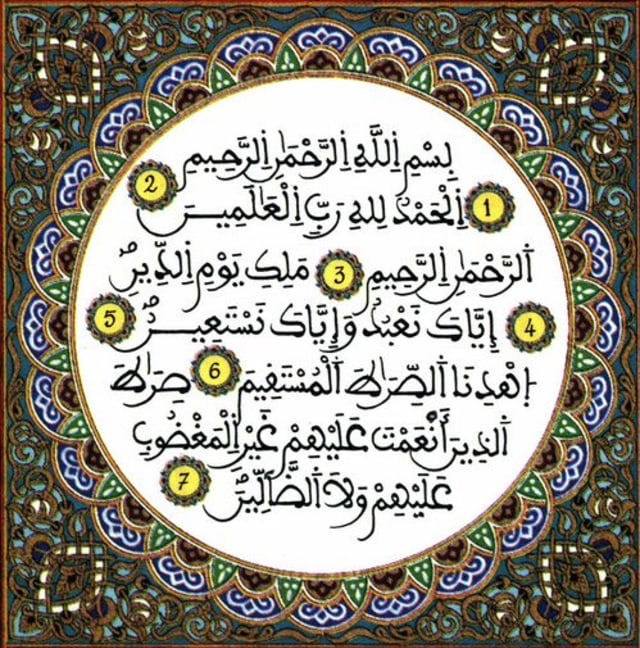 بِسْمِ اِللَّهِ اِلرَّحْمَٰنِ اِلرَّحِيمِ
1 اِلْحَمْدُ لِلهِ رَبِّ اِلْعَٰلَمِينَ 2
اَلرَّحْمَٰنِ اِلرَّحِيمِ 3 مَلِكِ يَوْمِ اِلدِّينِ
4 إِيَّاكَ نَعْبُدُ وَإِيَّاكَ نَسْتَعِينُ 5
اِهْدِنَا اَلصِّرَٰطَ اَلْمُسْتَقِيمَ 6 صِرَٰطَ
اَلذِينَ أَنْعَمْتَ عَلَيْهِمْ غَيْرِ اِلْمَغْضُوبِ
عَلَيْهِمْ وَلَا اَلضَّآلِّينَ 7